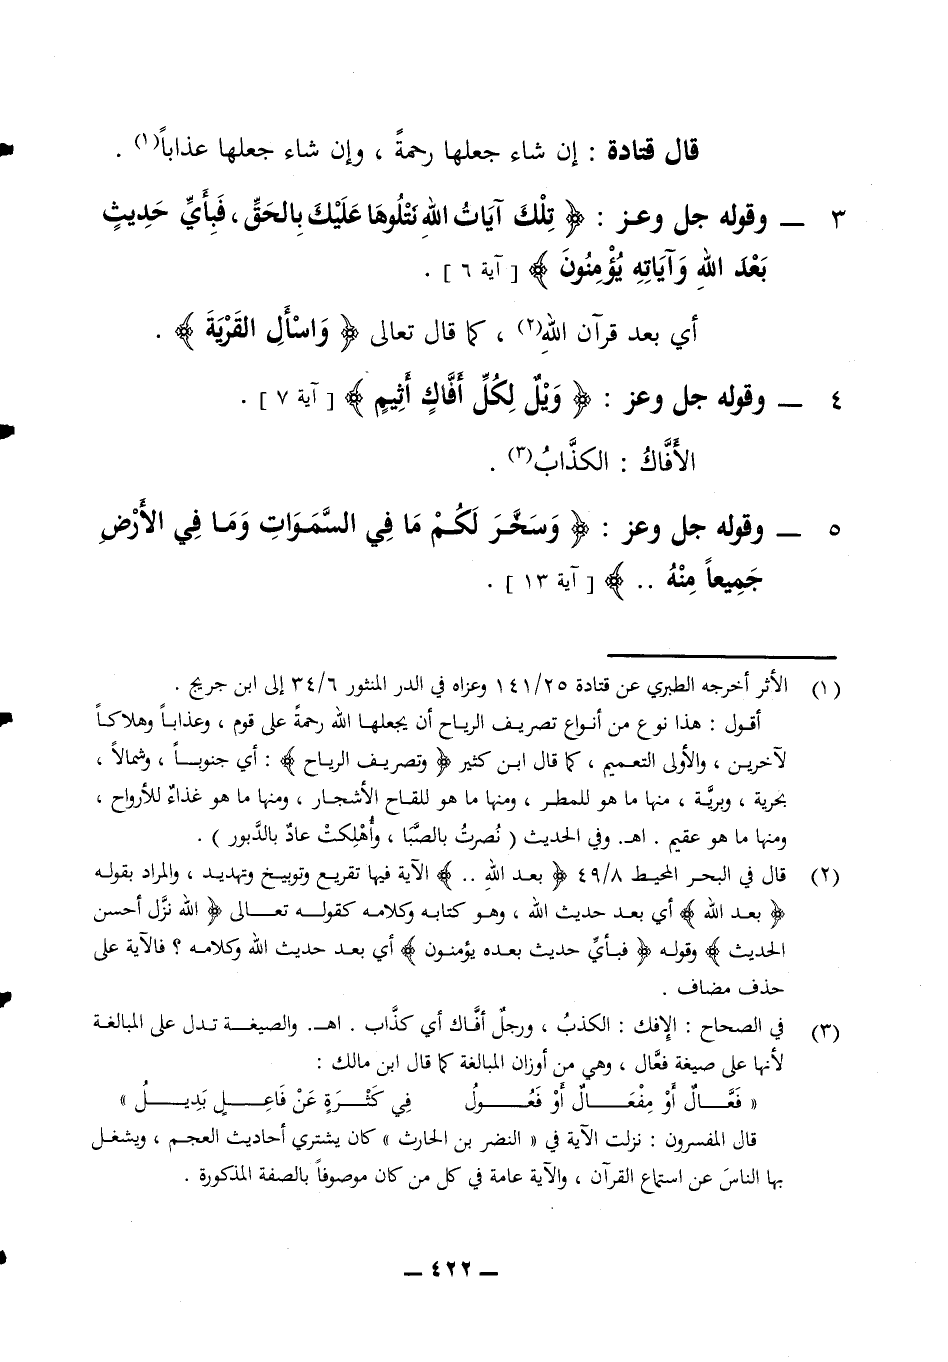 قال قتادة : إن شاء جعلها رحمةً ، وإن شاء جعلها عذاباً(١) .
٣ ــ وقوله جل وعـز : ﴿ تِلْكَ آيَاتُ اللهِ نَتْلُوهَا عَلَيْكَ بِالحَقِّ ، فَبِأَيِّ حَدِيثٍ
بَعْدَ اللهِ وَآيَاتِهِ يُؤْمِنُونَ ﴾ [ آية ٦ ] .
أي بعد قرآن اللهِ(٢) ، كما قال تعالى ﴿ وَاسْأَلِ القَرْيَةَ ﴾ .
٤ ــ وقوله جل وعز : ﴿ وَيْلٌ لِكُلِّ أَفَّاكٍ أَثِيمٍ ﴾ [ آية ٧ ] .
الأَفَّاكُ : الكذَّابُ(٣) .
٥ ــ وقوله جل وعز : ﴿ وَسَخَّرَ لَكُمْ مَا فِي السَّمَوَاتِ وَمَا فِي الأَرْضِ
جَمِيعاً مِنْهُ .. ﴾ [ آية ١٣ ] .
(١) الأثر أخرجه الطبري عن قتادة ١٤١/٢٥ وعزاه في الدر المنثور ٣٤/٦ إلى ابن جريج .
أقول : هذا نوع من أنواع تصريف الرياح أن يجعلها الله رحمةً على قوم ، وعذاباً وهلاكاً
لآخرين ، والأولى التعميم ، كما قال ابن كثير ﴿ وتصريف الرياح ﴾ : أي جنوبـاً ، وشمالاً ،
بحرية ، وبريَّة ، منها ما هو للمطر ، ومنها ما هو للقاح الأشجار ، ومنها ما هو غذاءٌ للأرواح ،
ومنها ما هو عقيم . اهـ. وفي الحديث ( نُصرتُ بالصَّبَا ، وأُهْلِكتْ عادٌ بالدَّبور ) .
(٢) قال في البحر المحيط ٤٩/٨ ﴿ بعد اللهِ .. ﴾ الآية فيها تقريع وتوبيخ وتهديد ، والمراد بقوله
﴿ بعد الله ﴾ أي بعد حديث الله ، وهو كتابه وكلامه كقوله تعـالى ﴿ الله نزَّل أحسن
الحديث ﴾ وقوله ﴿ فبأيِّ حديث بعده يؤمنون ﴾ أي بعد حديث الله وكلامه ؟ فالآية على
حذف مضاف .
(٣) في الصحاح : الإفك : الكذبُ ، ورجلٌ أفَّاك أي كذَّاب . اهـ. والصيغـة تدل على المبالغة
لأنها على صيغة فعَّال ، وهي من أوزان المبالغة كما قال ابن مالك :
« فَعَّـالٌ أَوْ مِفْعَـالٌ أَوْ فَعُـولُ    فِي كَثْـرَةٍ عَنْ فَاعِـلٍ بَدِيـلُ »
قال المفسرون : نزلت الآية في « النضر بن الحارث » كان يشتري أحاديث العجم ، ويشغل
بها الناسَ عن استماع القرآن ، والآية عامة في كل من كان موصوفاً بالصفة المذكورة .
ــ ٤٢٢ ــ